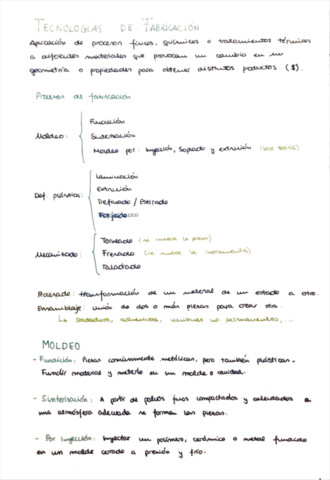 TECNOLOGÍAS DE FABRICACIÓN
Aplicación de procesos físicos, químicos o tratamientos térmicos
a diferentes materiales que provocan un cambio en su
geometría o propiedades para obtener distintos productos ($).
Procesos de fabricación
Fundición
Moldeo: Sinterización
Moldeo por: Inyección, Soplado y extrusión
Laminación
Extrusión
Def. plástica: Trefilado / Estirado
Forjado
Torneado (no mueve la pieza)
Mecanizado: Fresado (se mueve la herramienta)
Taladrado
Procesado: transformación de un material de un estado a otro.
Ensamblaje: unión de dos o más piezas para crear otra.
↳ soldadura, adhesivos, uniones no permanentes,...
MOLDEO
- Fundición: Piezas comúnmente metálicas, pero también plásticas.
Fundir material y meterlo en un molde o cavidad.
- Sinterización: A partir de polvos finos compactados y calentados a
una atmósfera adecuada se forman las piezas.
- Por Inyección: Inyectar un polímero, cerámico o metal fundido
en un molde cerrado a presión y frío.